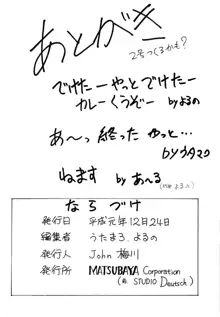 あとがき
2号つくるかも?
でけたーやっとでけたー
カレーくうぞー byよるの
あ〜っ終った やっと…
byウタマロ
ねます by あ〜る
ならづけ
発行日 平成元年12月24日
編集者 うたまろ、よるの
発行人 John 梅川
発行所 MATSUBAYA Corporation
(前 STUDIO Deutsch)